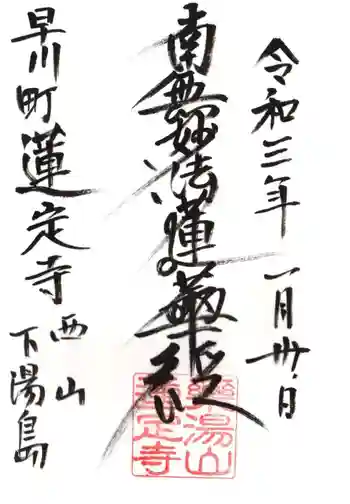 令和三年 一月卅一日
南無妙法蓮華経
早川町蓮定寺
西山
下湯島
樂湯山
蓮定寺